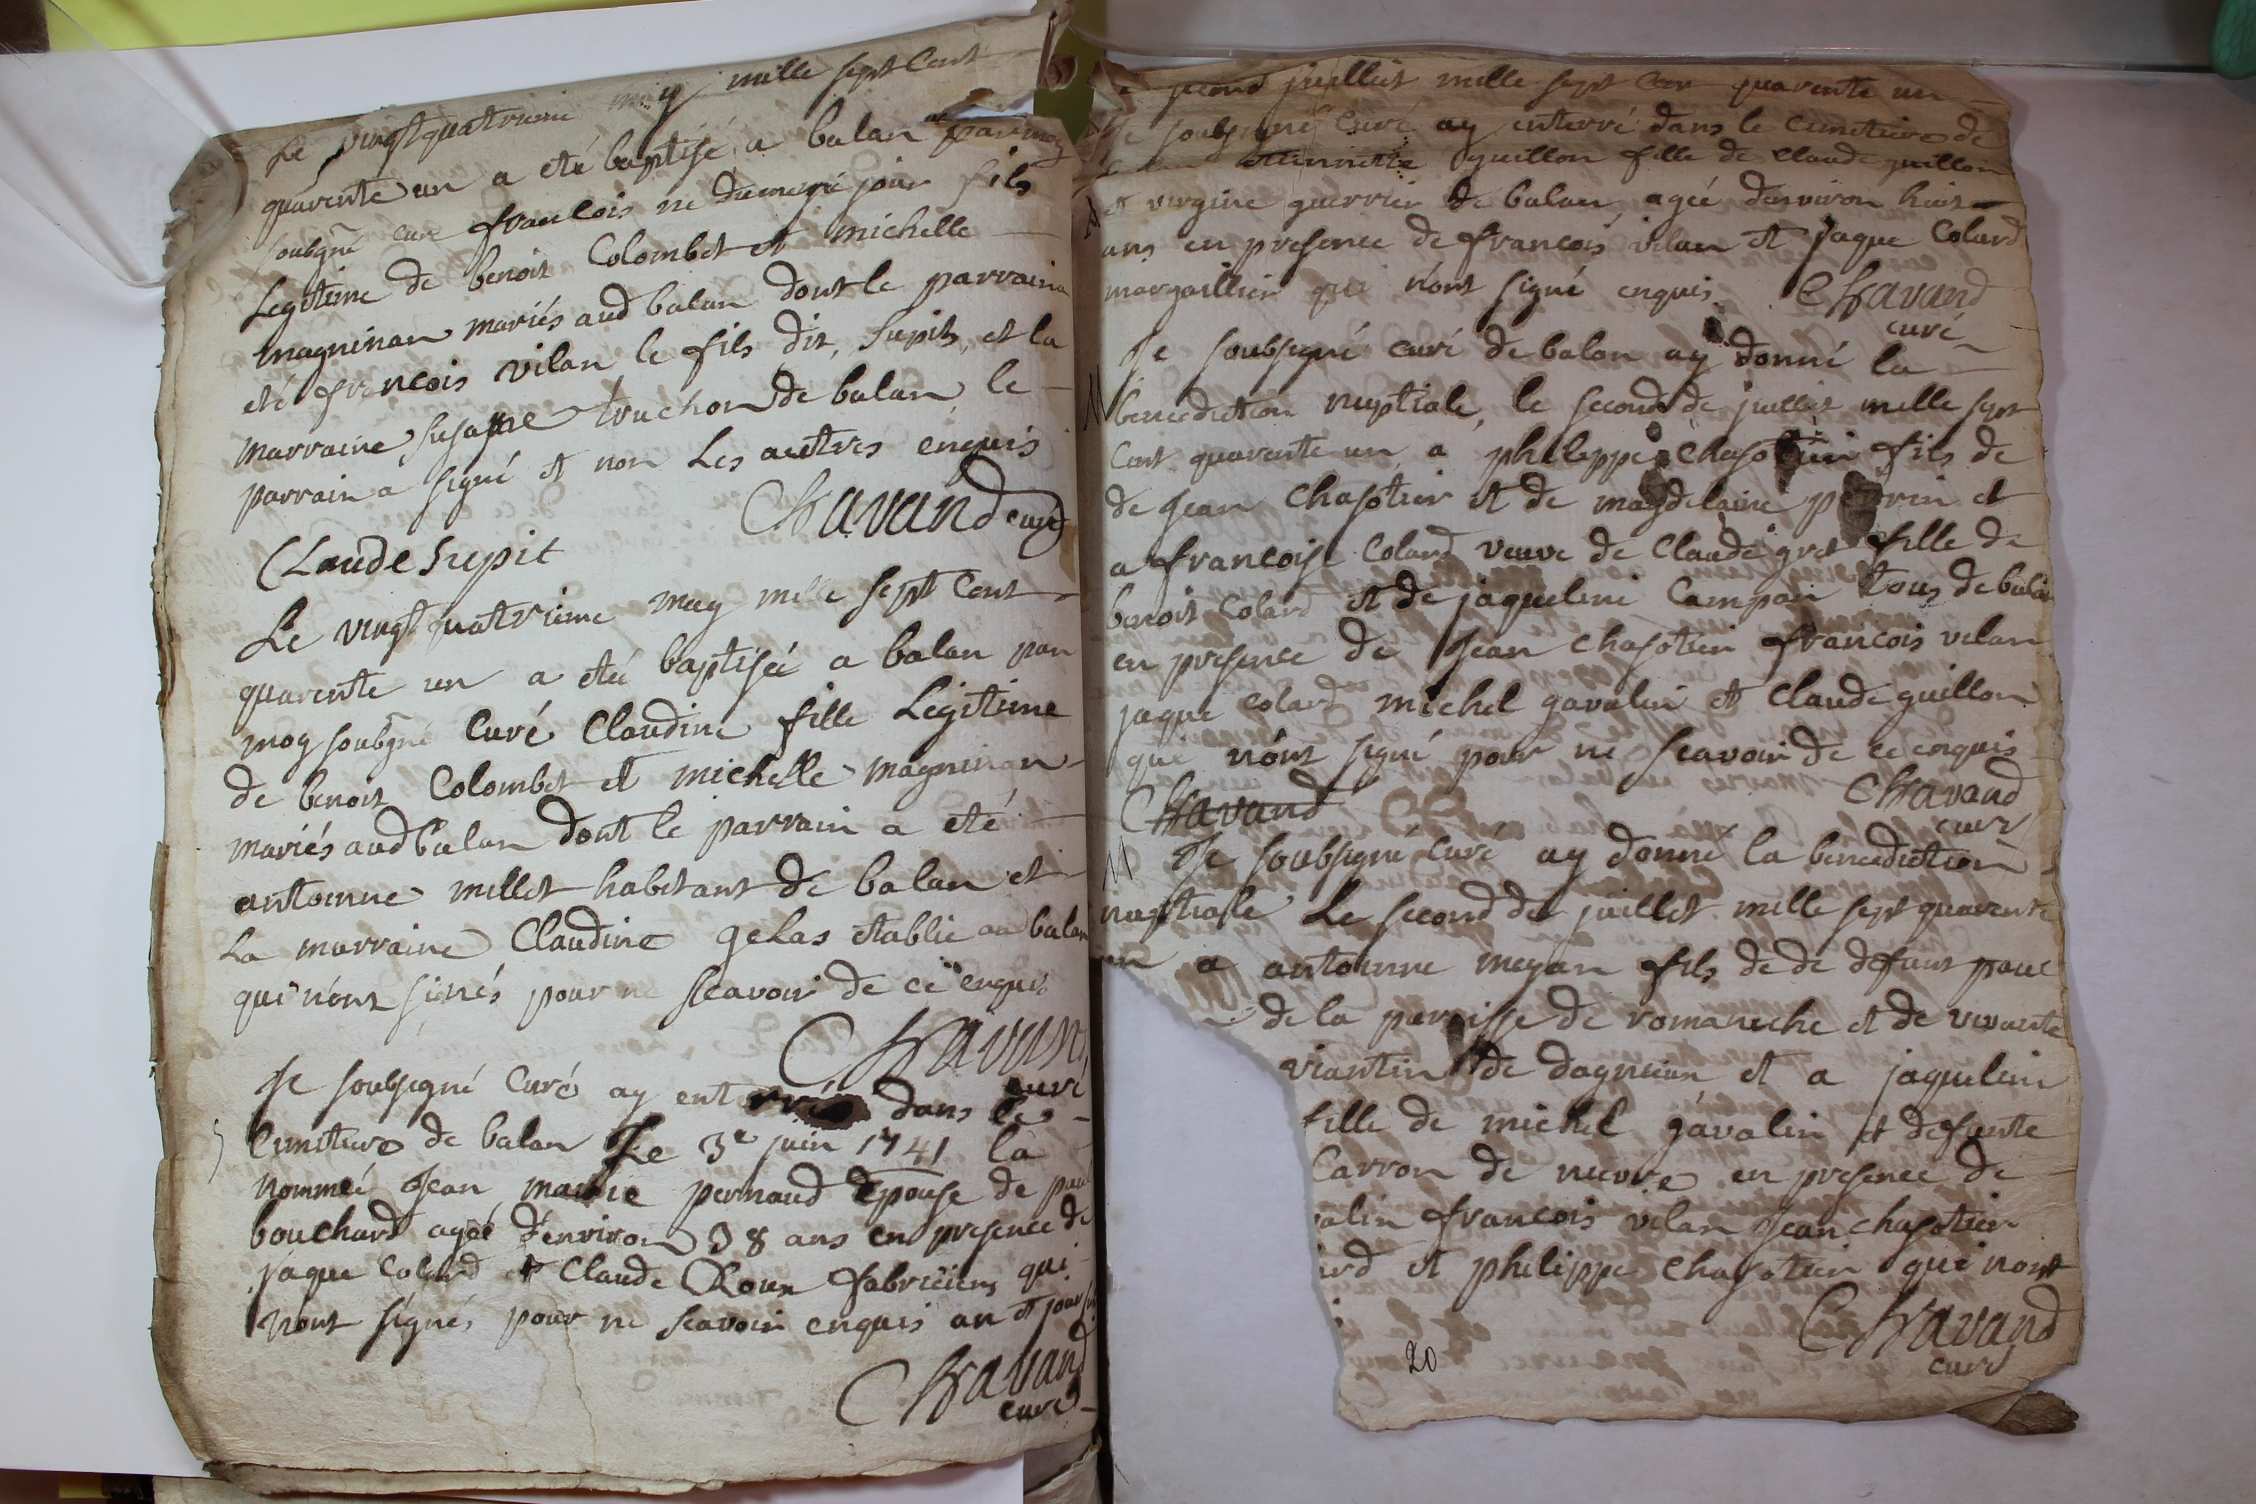 Le vingt quatrieme may mille sept Cent
quarente un a eté baptisé a balan par moy
soubgné curé francois né du meme jour fils
Legitime de benoit Colombet et michelle
magninan mariés aud balan dont le parrain a
eté francois vilan le fils dit, supit, et la
marraine susanne truchon de balan le
parrain a signé et non Les autres enquis
Chavand curé
CLaude Supit
Le vingt quatrieme may mille sept Cent
quarente un a eté baptisée a balan par
moy soubgné Curé Claudine fille Legitime
de benoit Colombet et michelle magninan
mariés aud balan dont le parrain a eté
antoinne millet habitant de balan et
La marraine Claudine gelas etablie au balan
qui n'ont sinés pour ne scavoir de ce enquis
Chavand
curé
Je soubsigné Curé ay enterré dans le
Cimetiere de balan Le 3e juin 1741 la
nommeé Jean marie pernaud Epouse de paul
bouchard ageé d'environ 38 ans en presence de
jaque Colard et Claude Roux fabriciens qui
n'ont signés pour ne scavoir enquis an et jour
Chavand
curé
second juillet mille sept Cent quarente un
soubsigné Curé ay enterré dans le Cimetiere de
guillon fille de Claude guillon
et virgine guerrier de balan ageé d'environ huit
ans en presence de francois vilan et jaque Colard
margaillier qui n'ont signé enquis. Chavand
curé
Je soubsigné curé de balan ay donné la
M benediction nuptiale, le second de juillet mille sept
Cent quarente un a philippe Chasotier fils de
de jean Chasotier et de magdelaine perrin et
a francoise Colard veuve de Claude gret fille de
benoit Colard et de jaqueline Campan tous de balan
en presence de Jean Chasotier francois vilan
jaque colard michel gavalin et Claude guillon
qui n'ont signé pour ne scavoir de ce enquis
Chavand Chavand
curé
M Je soubsigné Curé ay donné la benediction
nuptialle Le second de juillet mille sept quarente
un a antoinne meyan fils de de defunt paul
de la parroisse de romaneche et de vivante
viantin de dagnieu et a jaquelin
fille de michel gavalin et defunte
Carron de nievre en presence de
valin francois vilan jean chasotier
ard et philippe Chasotier qui nont
Chavand
curé
20